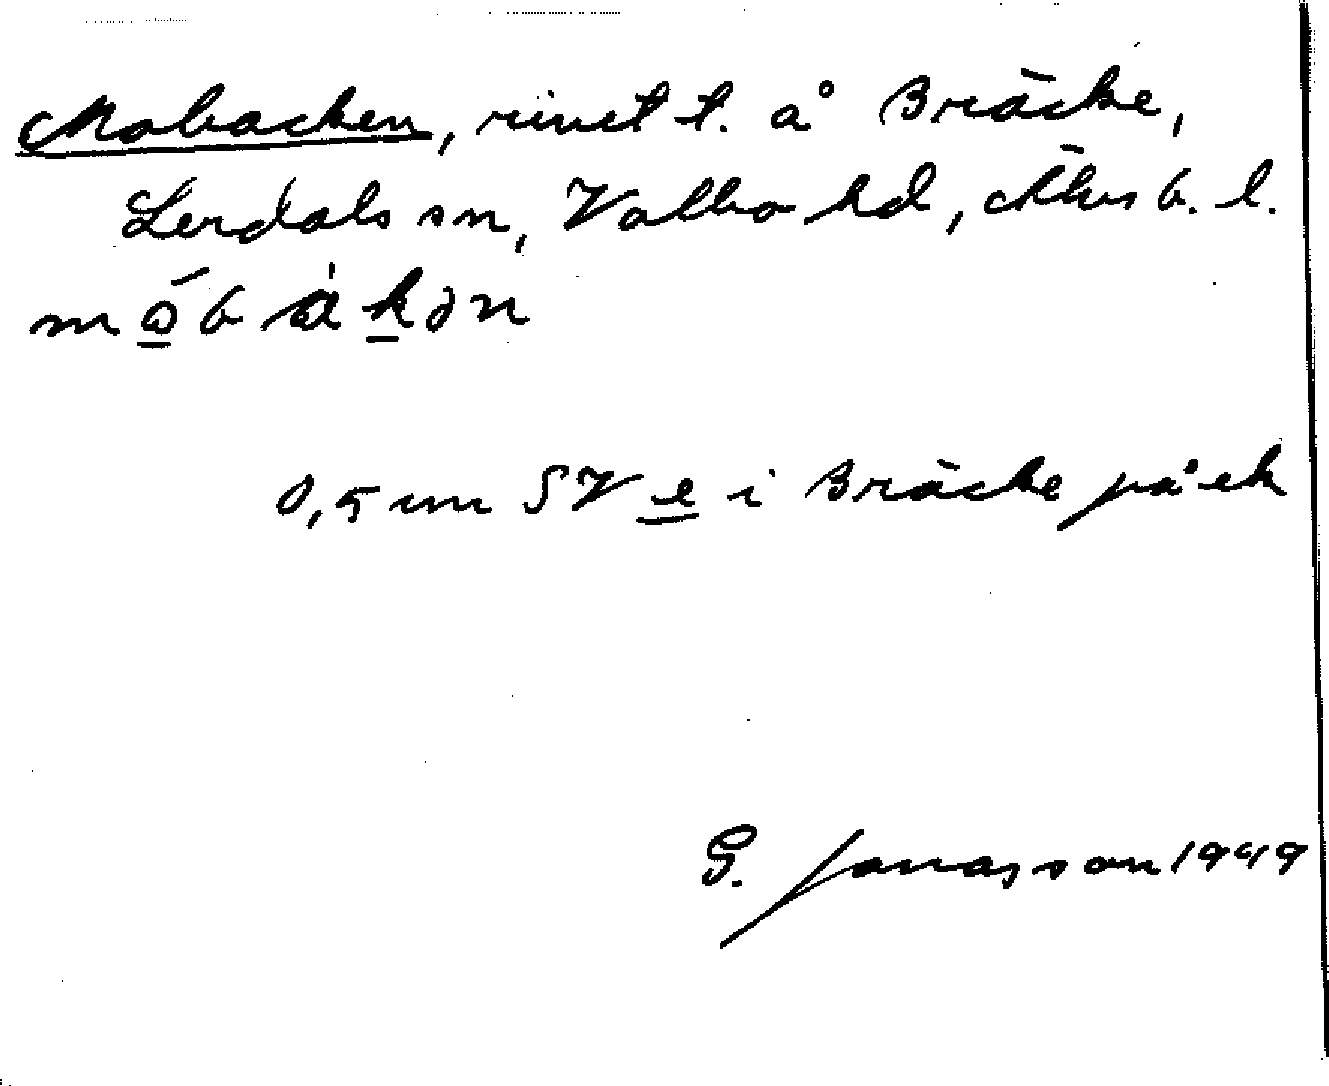 Mobacken, rinet t. å Bräcke,
Lerdals sn, Valbo hd, Älvsb. l.
mo̲̅bàk̲ən
0,5 cm SV e̲ i Bräcke på ek
G. Jonasson 1949